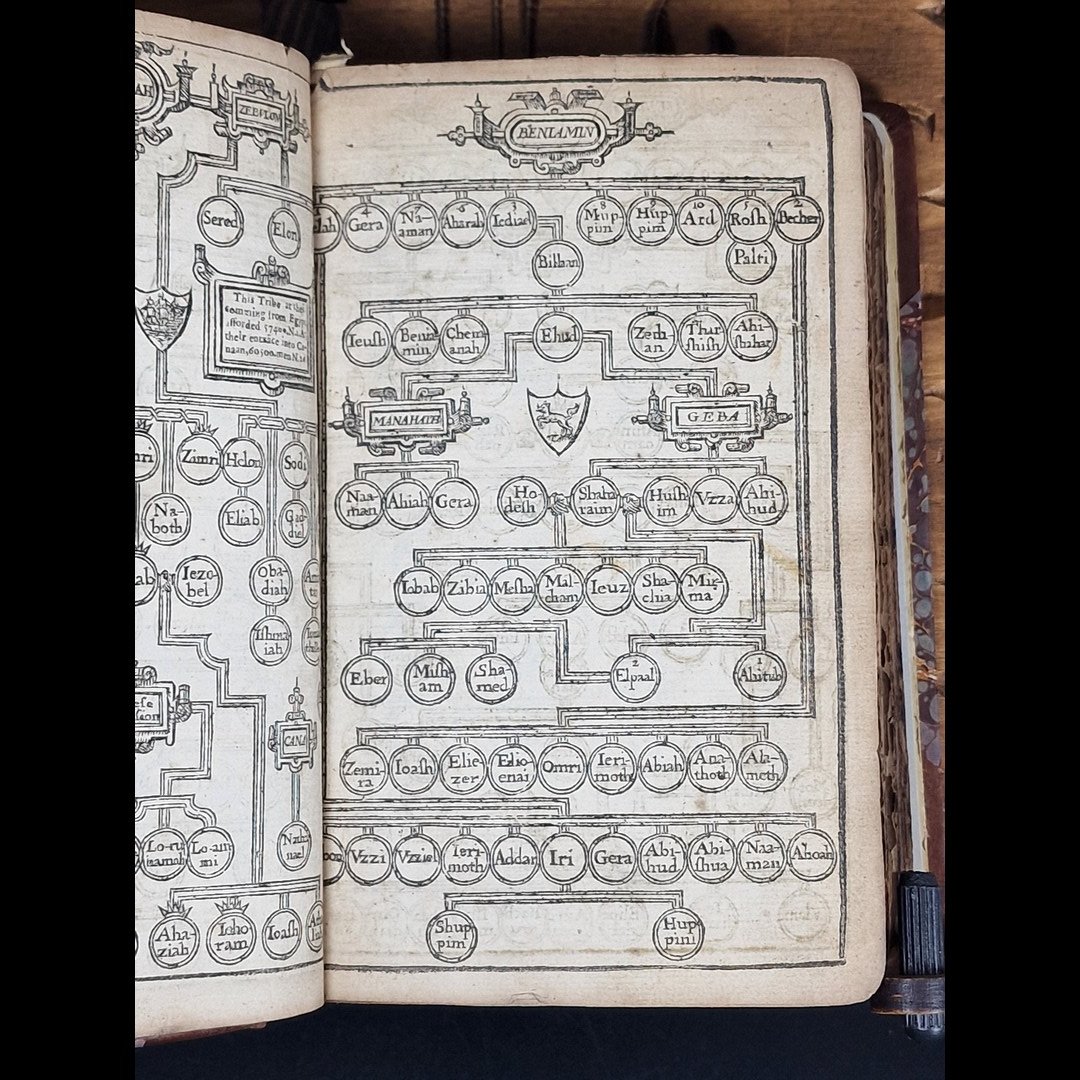 ZEBULON
Sered
Elon
This Tribe at their
comming from Egypt
afforded 57400. N. 1.
their entrāce into Ca-
naan, 60500. men N. 26
Zimri
Helon
Na-
both
Eliab
Iezo-
bel
Oba-
diah
Ishma-
iah
CANA
Lo-ru-
hamah
Lo-am-
mi
Natha-
nael
Aha-
ziah
Ieho-
ram
Ioash
BENIAMIN
4
Gera
7
Na-
aman
6
Aharah
3
Iediael
8
Mup-
pim
9
Hup-
pim
10
Ard
5
Rosh
2
Becher
Bilhan
Palti
Ieush
Benia-
min
Chena-
anah
Ehud
Zeth-
an
Thar-
shish
Ahi-
shahar
MANAHATH
GEBA
Naa-
man
Ahiah
Gera
Ho-
desh
Shaha-
raim
Hush-
im
Vzza
Ahi-
hud
Iobab
Zibia
Mesha
Mal-
cham
Ieuz
Sha-
chia
Mir-
ma
Eber
Mish-
am
Sha-
med
2
Elpaal
1
Ahitub
Zemi-
ra
Ioash
Elie-
zer
Elio-
enai
Omri
Ieri-
moth
Abiah
Ana-
thoth
Ala-
meth
Vzzi
Vzziel
Ieri-
moth
Addar
Iri
Gera
Abi-
hud
Abi-
shua
Naa-
man
Ahoah
Shup-
pim
Hup-
pim